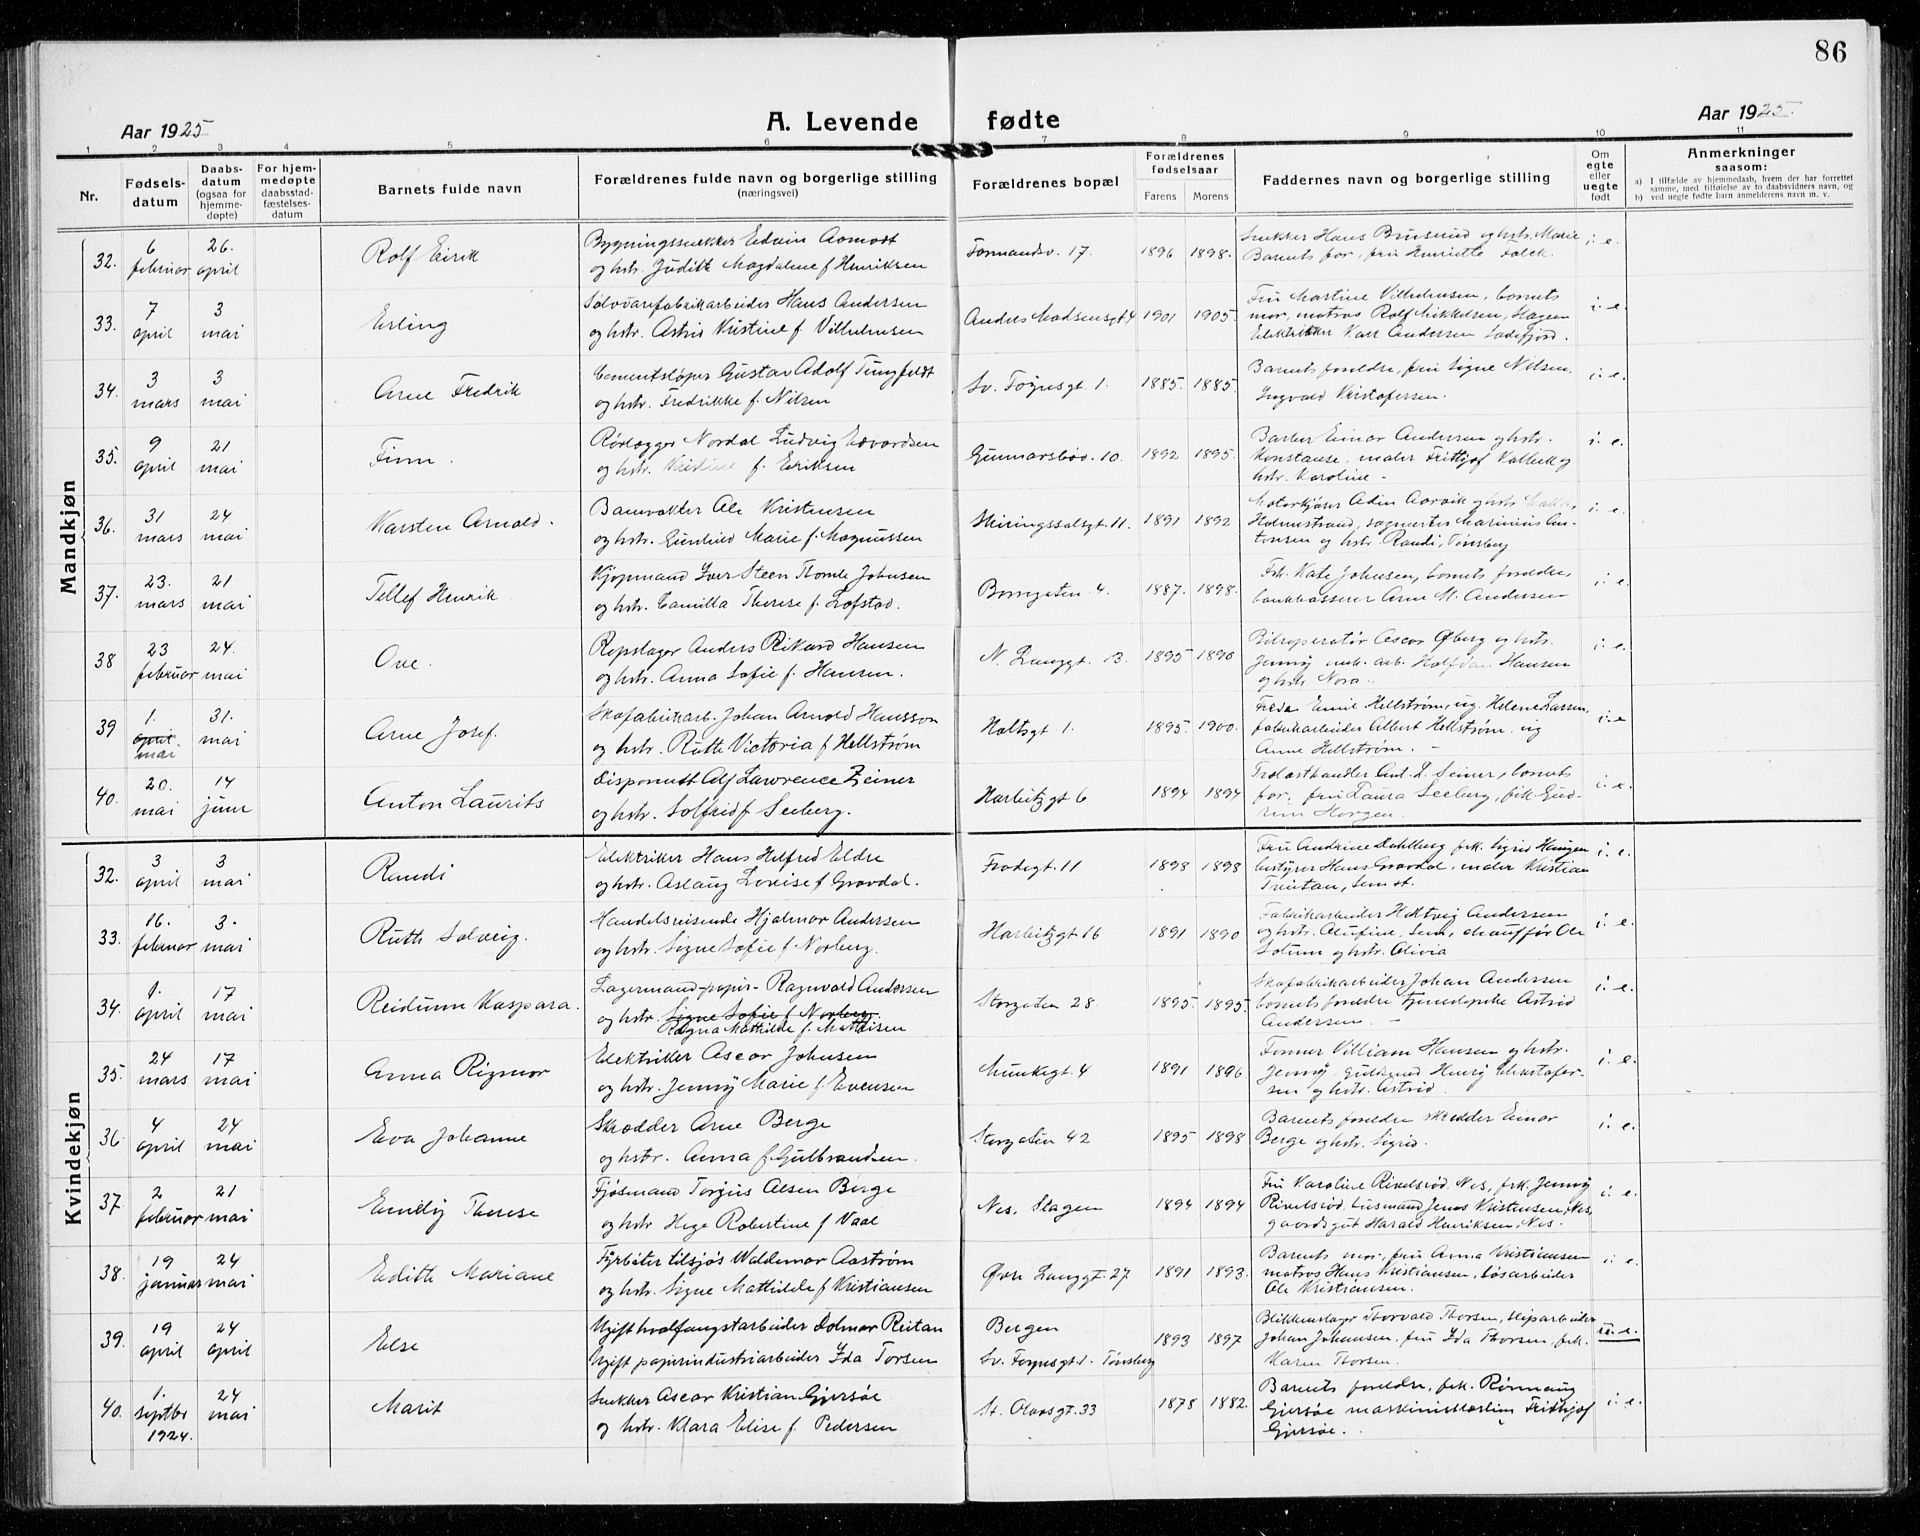 86
Aar 1925
A. Levende fødte
Aar 1925.
1 2 3 4 5 6 7 8 9 10 11
Nr.
Fødsels-
datum
Daabs-
datum
(ogsaa for
hjemme-
døpte)
For hjem-
medøpte
daabsstad-
fæstelses-
datum
Barnets fulde navn
Forældrenes fulde navn og borgerlige stilling
(næringsvei)
Forældrenes bopæl
Forældrenes
fødselsaar
Farens Morens
Faddernes navn og borgerlige stilling
Om
egte
eller
uegte
født
Anmerkninger
saasom:
a) I tilfælde av hjemmedaab, hvem der har forrettet
samme, med tilføielse av to daabsvidners navn, og
b) ved uegte fødte barn anmelderens navn m. v.
Mandkjøn
32. 6 februar 26. april Rolf Eirik
Bygningssnekker Edvin Aamodt
og hstr. Judith Magdalene f. Henriksen
Formandsv. 17. 1896 1898.
Snekker Hans Bruserud og hstr. Marie
Barnets far, fru Henriette Falck.
i. e.
33. 7 april 3 mai Erling
Sølvvarefabrikarbeider Hans Andersen
og hstr. Astrid Kristine f. Vilhelmsen
Anders Madsensgt 4 1901 1905.
Fru Martine Vilhelmsen, barnets
mor, matros Rolf Mikkelsen, Slagen
Elektrikker Karl Andersen Sandefjord.
i. e.
34. 3 mars 3 mai Arne Fredrik
Cementstøper Gustav Adolf Tungfeldt
og hstr. Fredrikke f. Nilsen
Sv. Føynsgt. 1. 1885. 1885.
Barnets foreldre, fru Signe Nilsen,
Ingvald Kristofersen.
i. e.
35. 9 april 21 mai Finn.
Rørlægger Nordal Ludvig Edvardsen
og hstr. Kristine f. Eriksen
Gunnarsbøv. 10. 1892 1895.
Barber Einar Andersen og hstr.
Konstanse, maler Frithjof Kalbek og
hstr. Karoline -
i. e.
36. 31 mars 24 mai Karsten Arnold.
Banevokter Ole Kristensen
og hstr. Gunhild Marie f. Magnussen
Skiringssalsgt. 11. 1891 1892
Motorkjører Odin Aarvik og hstr.
Holmestrand, sagmester Marinius An-
tonsen og hstr. Randi, Tønsberg
i. e.
37. 23. mars 21 mai Tellef Henrik
Kjøpmand Iver Steen Thomle Johnsen
og hstr. Camilla Therese f. Lofstad.
Borregaten 4. 1887. 1898.
Frk. Kate Johnsen, barnets foreldre,
bankkasserer Arne M. Andersen
i. e.
38 23 februar 24. mai Ove.
Repslager Anders Rikard Hansen
og hstr. Anna Sofie f. Hansen.
N. Langgt. 13. 1895 1896
Bilreperatør Oscar Øberg og hstr.
Jenny mek. arb. Halfdan Hansen
og hstr Nora.
i. e.
39 1. april mai 31. mai Arne Josef.
Skofabrikarb. Johan Arnold Hansson
og hstr. Ruth Victoria f. Hellstrøm
Holtsgt 1. 1895. 1900.
Emil Hellstrøm, ug. Helene Larsen,
fabrikarbeider Albert Hellstrøm, ug
Anne Hellstrøm. -
i. e
40. 20. mai 14 juni Anton Laurits
Disponent Alf Lawrence Zeiner
og hstr. Solfrid f Seeberg.
Harbitzgt 6 1894 1894
Trelasthandler Ant. L. Zeiner, barnets
far, fru Laura Seeberg, frk Gud-
run Horgen.
i. e.
Kvindekjøn
32. 3 april 3 mai Randi
Elektriker Hans Helfred Eldre
og hstr. Aslaug Lovise f Gravdal.
Frodegt. 11 1898 1898
Fru Andrine Dahlberg frk. Sigrid Haugen
bestyrer Hans Gravdal, maler Kristian
Treidan, Sem st.
i. e.
33. 16. februar 3. mai Ruth Solveig.
Handelsreisende Hjalmar Andersen
og hstr. Signe Sofie f. Norberg.
Harbitzgt 16 1891 1890
Fabrikarbeider Hektvig Andersen
og hstr. Olufine, Sem, chauffør Ole
Solum og hstr. Olivia
i. e.
34. 1. april 17 mai Reidunn Kaspara.
Lagermand-papir- Ragnvald Andersen
og hstr. Signe Sofie f Norberg.
Ragna Mathilde f. Mathisen
Storgaten 28. 1895. 1895
Skofabrikarbeider Johan Andersen
barnets foreldre tjenestepike Astrid
Andersen. -
i. e.
35. 24 mars 17 mai Anna Rigmor
Elektriker Oscar Johnsen
og hstr. Jenny Marie f. Evensen
Munkegt. 4 1891 1896
Former Villiam Hansen og hstr.
Jenny, Guldsmed Henry Kristofer-
sen og hstr. Astrid.
i. e.
36 4 april 24 mai Eva Johanne
Skrædder Arne Berge
og hstr. Anna f. Gulbrandsen.
Storgaten 42 1895 1898
Barnets foreldre skredder Einar
Berge og hstr. Sigrid.
i. e.
37. 2 februar 21 mai Emely Therese
Fjøsmand Torgius Olsen Berge
og hstr Hege Robertine f Vaal
Nes. Slagen 1894 1894
Fru Karoline Rivelsrød, Nes, frk. Jenny
Rivelsrød, husmand Jens Kristensen, Nes,
gaardsgut Harald Henriksen, Nes.
i. e.
38. 19 januar 24 mai Edith Mariane
Fyrbøter tilsjøs Waldemar Aastrøm
og hstr. Signe Mathilde f Kristiansen
Øvre Langgt. 27 1891 1893.
Barnets mor, fru Anna Kristiansen
matros Hans Kristiansen, løsarbeider
Ole Kristiansen.
i. e.
39. 19 april 24 april Else
Ugift hvalfangstarbeider Dolmar Reitan
Ugift papirindustriarbeider Ida Torsen
Bergen
Sv. Foynsgt. 1. Tønsberg
1893 1897
Blikkenslager Thorvald Thorsen, slipparbeider
Johan Johansen, fru Ida Thorsen, frk.
Maren Thorsen.
u. e.
40. 1. septbr 1924. 24 mai Marit
Snekker Oscar Kristian Gjersøe
og hstr. Klara Elise f. Pedersen
St. Olavsgt. 33 1878 1882.
Barnets foreldre, frk. Rønnaug
Gjersøe Frithjof
Gjersøe.
i. e.